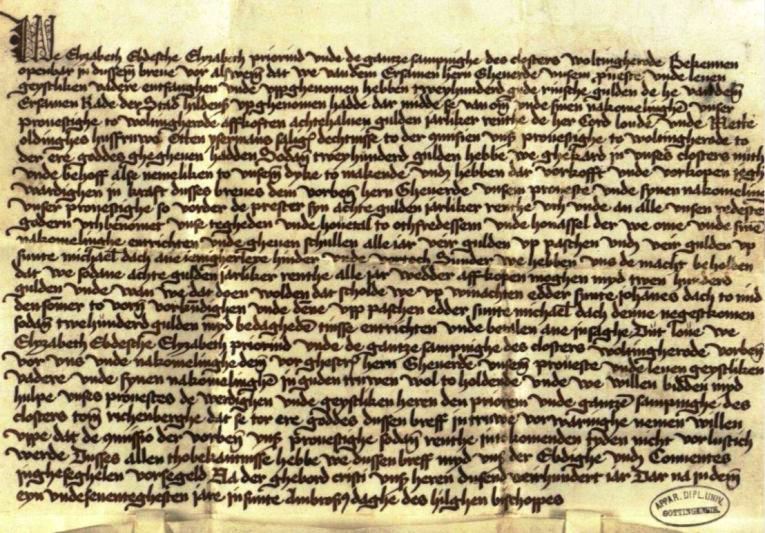 We Elyzabeth Ebdesche Elyzabeth priorind vnde de gantze sampnighe des closters woltingherode Bekennen
openbar in dussem breue vor alsweme dat we van dem Ersamen hern Gheuerde vnsem proueste vnde leuen
geystliken vadere entfanghen vnde vpghenomen hebben tweyhunderd gude rinsche gulden de he van dem
Ersamen Rade der Stad hildens vpghenomen hadde dar midde se van om vnde synen nakomelinghen vnser
prouestighe to woltingherode affkoften achtehaluen gulden jarliker renthe de her Cord vnde Mette
oldinghes husfruwe Otten ysermans salighen dechtnisse to der missien vnser prouestighe to woltingherode to
der ere goddes ghegheuen hadden Sodan tweyhunderd gulden hebbe we ghekard in vnses closters nuth
vnde behoff alse nemeliken to vnsem dyke to makende vnd hebben dar vorkofft vnde vorkopen
wardighen in kraft dusses breues dem vorben hern Gheuerde vnsem proueste vnde synen nakomelingen
vnser prouestighe so vorder de prester syn achte gulden jarliker renthe vth vnde an alle vnsen redesten
gudern vthbenomet vnse tegheden vnde houetal to othfredessem vnde honassel der we ome vnde sine
nakomelinghe entrichten vnde gheuen schullen alle iar veir gulden vp paschen vnd veir gulden vp
sunte michael dach ane iengherleye hinder vnde vortoch Sunder we hebben vns de macht beholden
dat we sodane achte gulden jarliker renthe alle jar wedder affkopen moghen myd twen hunderd
gulden vnde wan we dat doen wolden dat scholde we vp winachten edder sunte johannes dach to mid
den somer to voren vorkundighen vnde denne vpp paschen edder sunte michael dach denne negestkomen
sodan tweyhunderd gulden myd bedagheden tinsse entrichten vnde betalen ane insaghe Dut loue we
Elyzabeth Ebdesche Elyzabeth priorind vnde de gantze sampnighe des closters woltingherode vorben
vor vns vnde nakomelinghe dem vorghescr hern Gheuerde vnsem proueste vnde leuen geystliken
vadere vnde synen nakomelinghen in guden truwen wol to holdende vnde we willen bidden myd
hulpe vnses prouestes de werdighen vnde geystliken heren den priorem vnde gantzen sampnighe des
closters tom richenberghe dat se tor ere goddes dussen breff in truwe vorwaringhe nemen willen
vppe dat de missio der vorben vnser prouestighe sodan renthe in tokomenden tyden nicht vorlustich
werde Dusses allen tho bekantnisse hebbe we dussen breff myd vnser der Ebdighe vnd Conuentes
ingheseghelen vorsegeld Na der ghebord cristi vnses heren dusend veirhundert iar Dar na in dem
eyn vnde seuenteghesten jare in sunte Ambrosij daghe des hilghen bischoppes
APPAR. DIPL. UNIV.
GOTTINGENSIS.